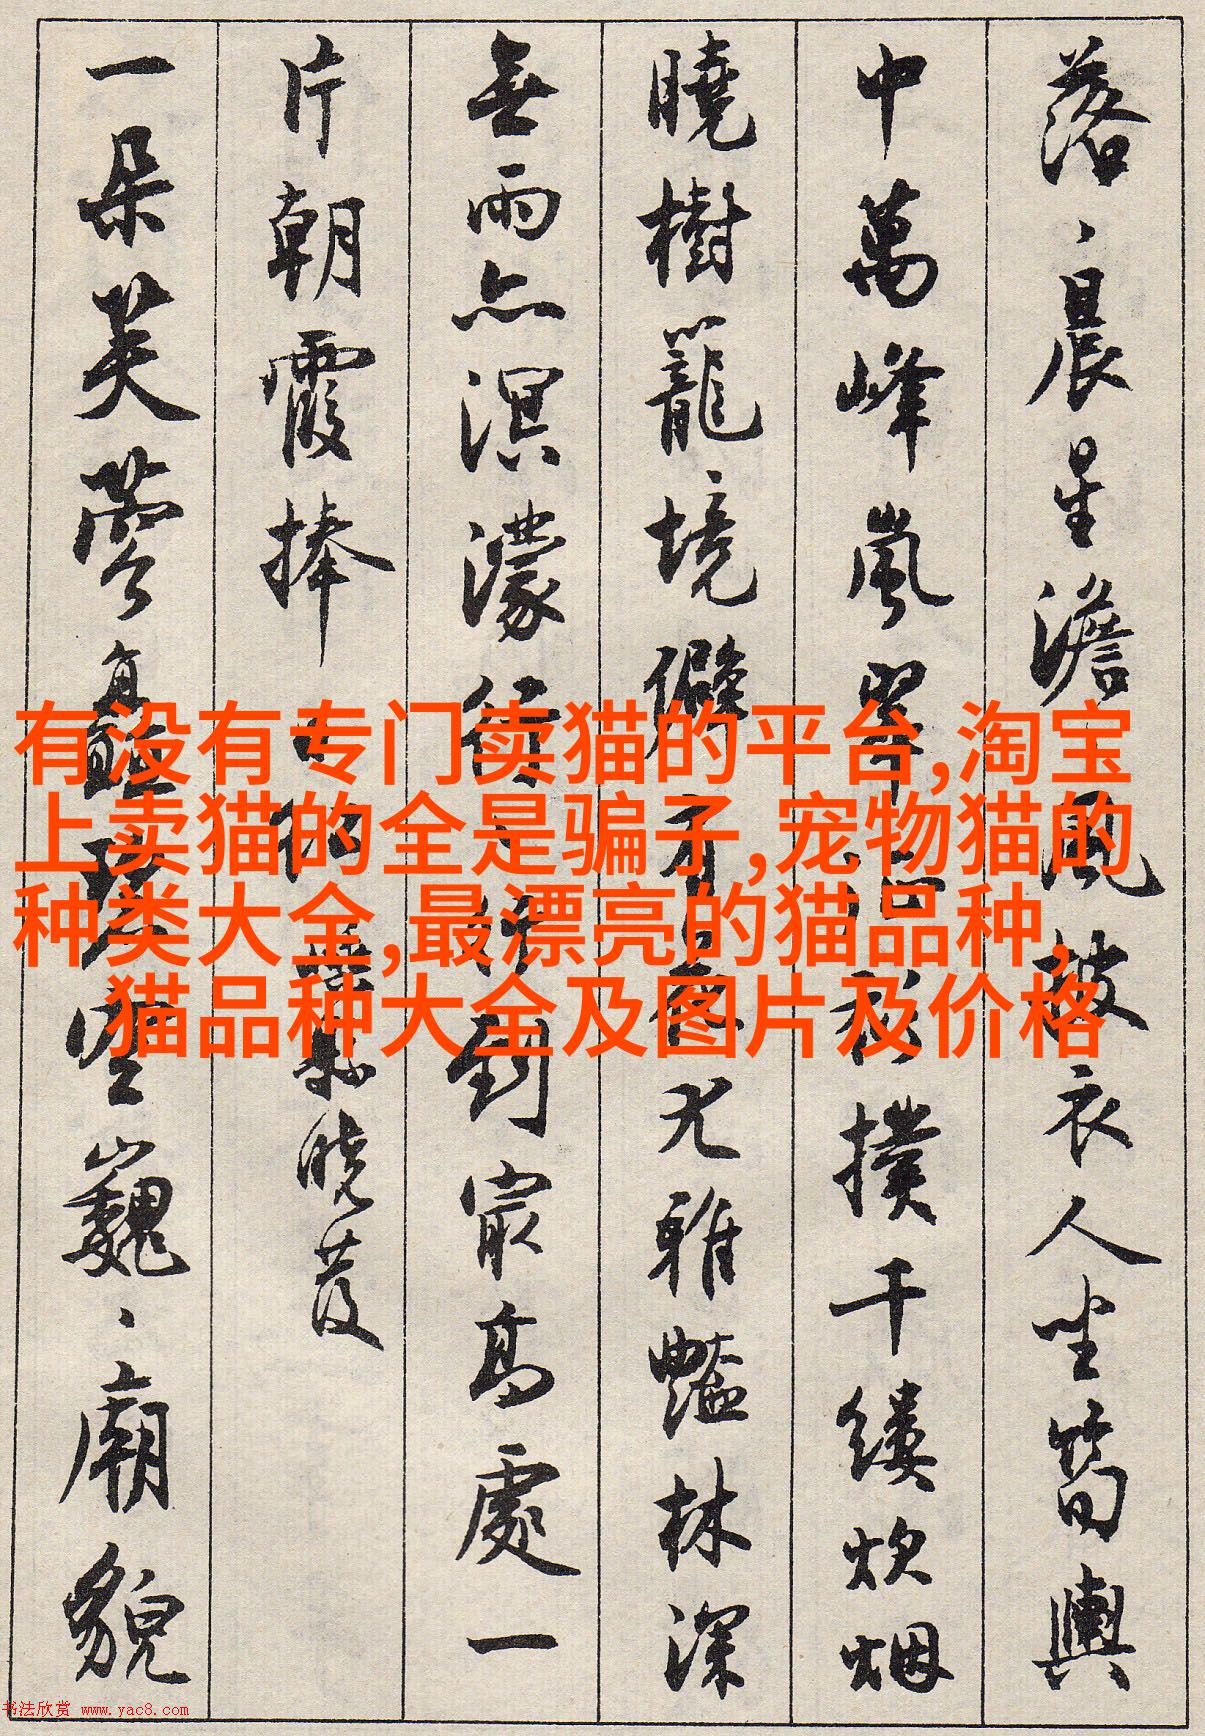 落、晨星澹風披衣人坐筍輿
中萬峰嵐翠撲千縷炊烟
曉樹籠、境僻有尤雅豔林深
無雨亦溟濛行到最高處一
片朝霞捧日縣曉發
一朵芙蓉直巍、廟貌
有没有专门卖猫的平台,淘宝
上卖猫的全是骗子,宠物猫的
种类大全,最漂亮的猫品种,
猫品种大全及图片及价格
书法欣赏 www.yac8.com